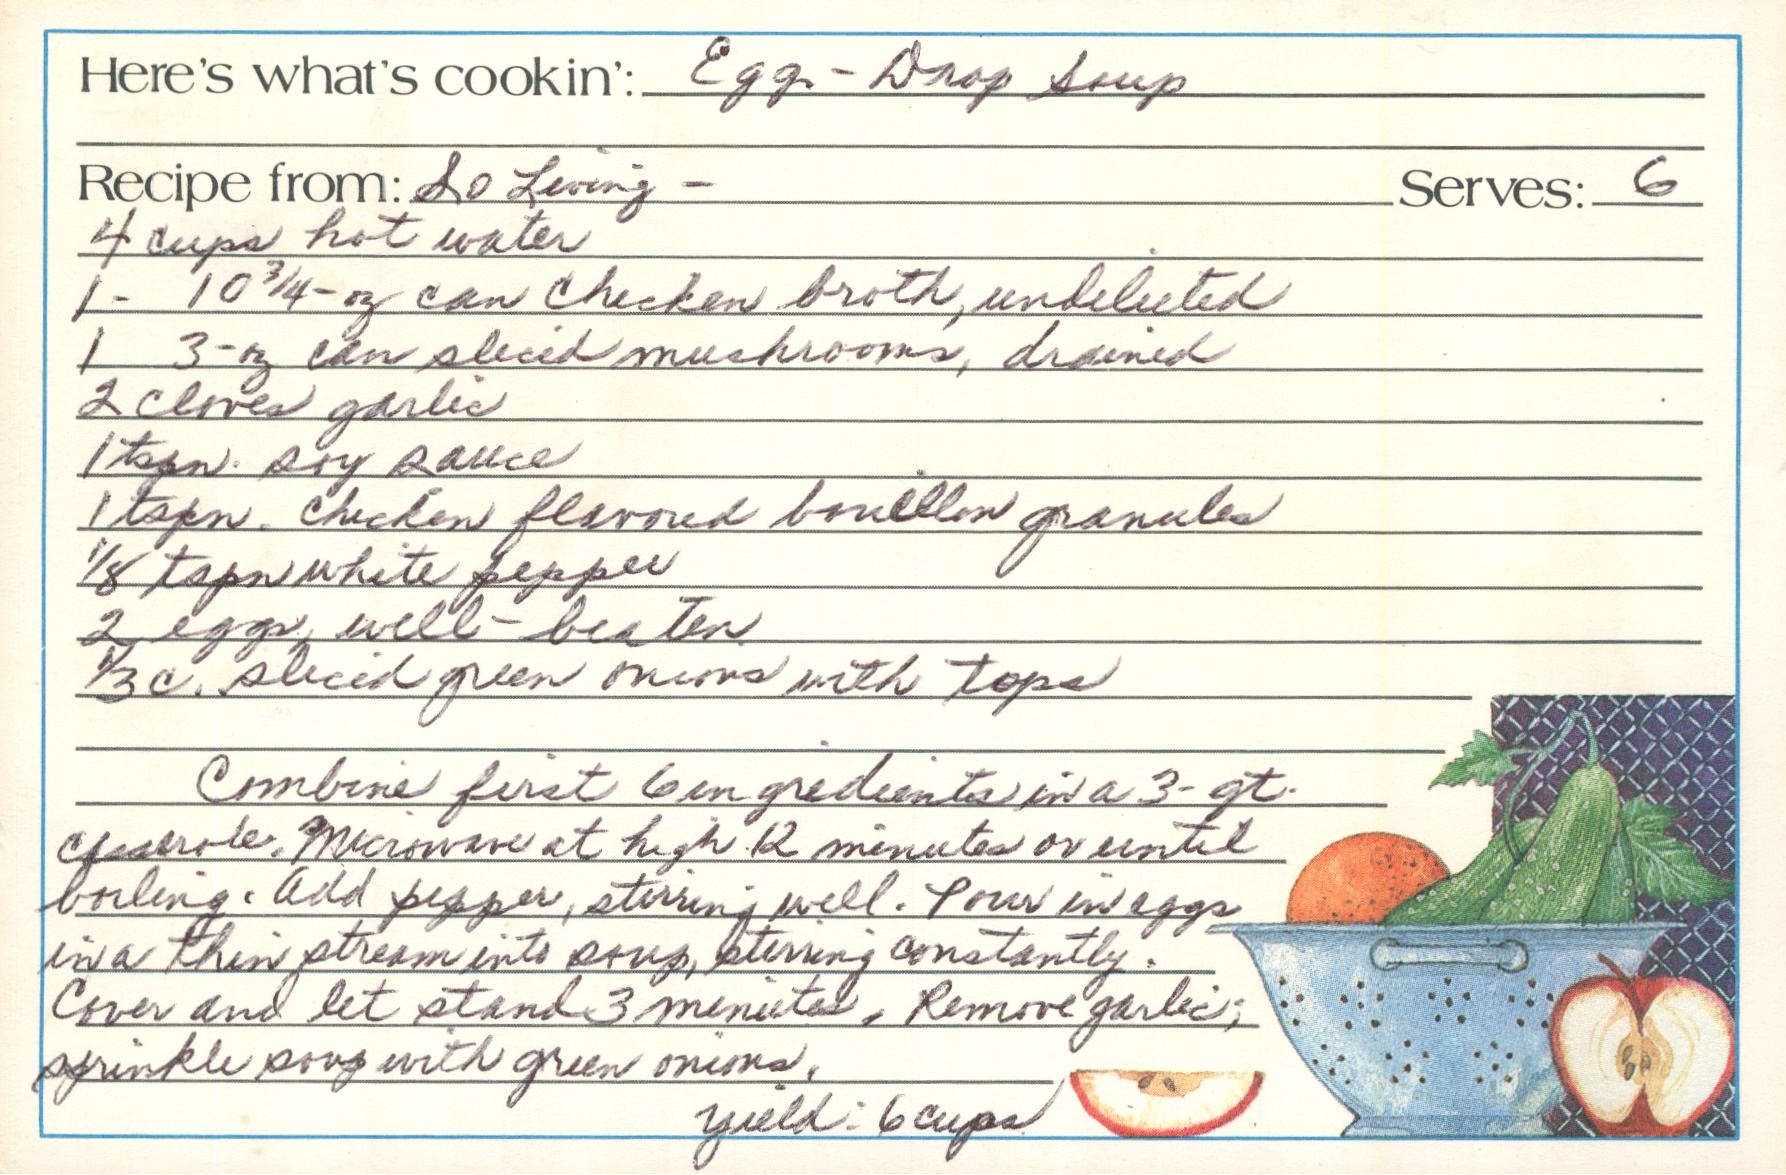 Here's what's cookin': Egg-Drop Soup
Recipe from: So Living - Serves: 6
4 cups hot water
1- 10 3/4-oz can chicken broth, undeluted
1 3-oz can sliced mushrooms, drained
2 cloves garlic
1 tspn. soy sauce
1 tspn. chicken flavored bouillon granules
1/8 tspn white pepper
2 eggs, well-beaten
1/3 c. sliced green onions with tops
Combine first 6 ingredients in a 3-qt.
casserole. Microwave at high 12 minutes or until
boiling. Add pepper, stirring well. Pour in eggs
in a thin stream into soup, stirring constantly.
Cover and let stand 3 minutes. Remove garlic;
sprinkle soup with green onions.
Yield: 6 cups